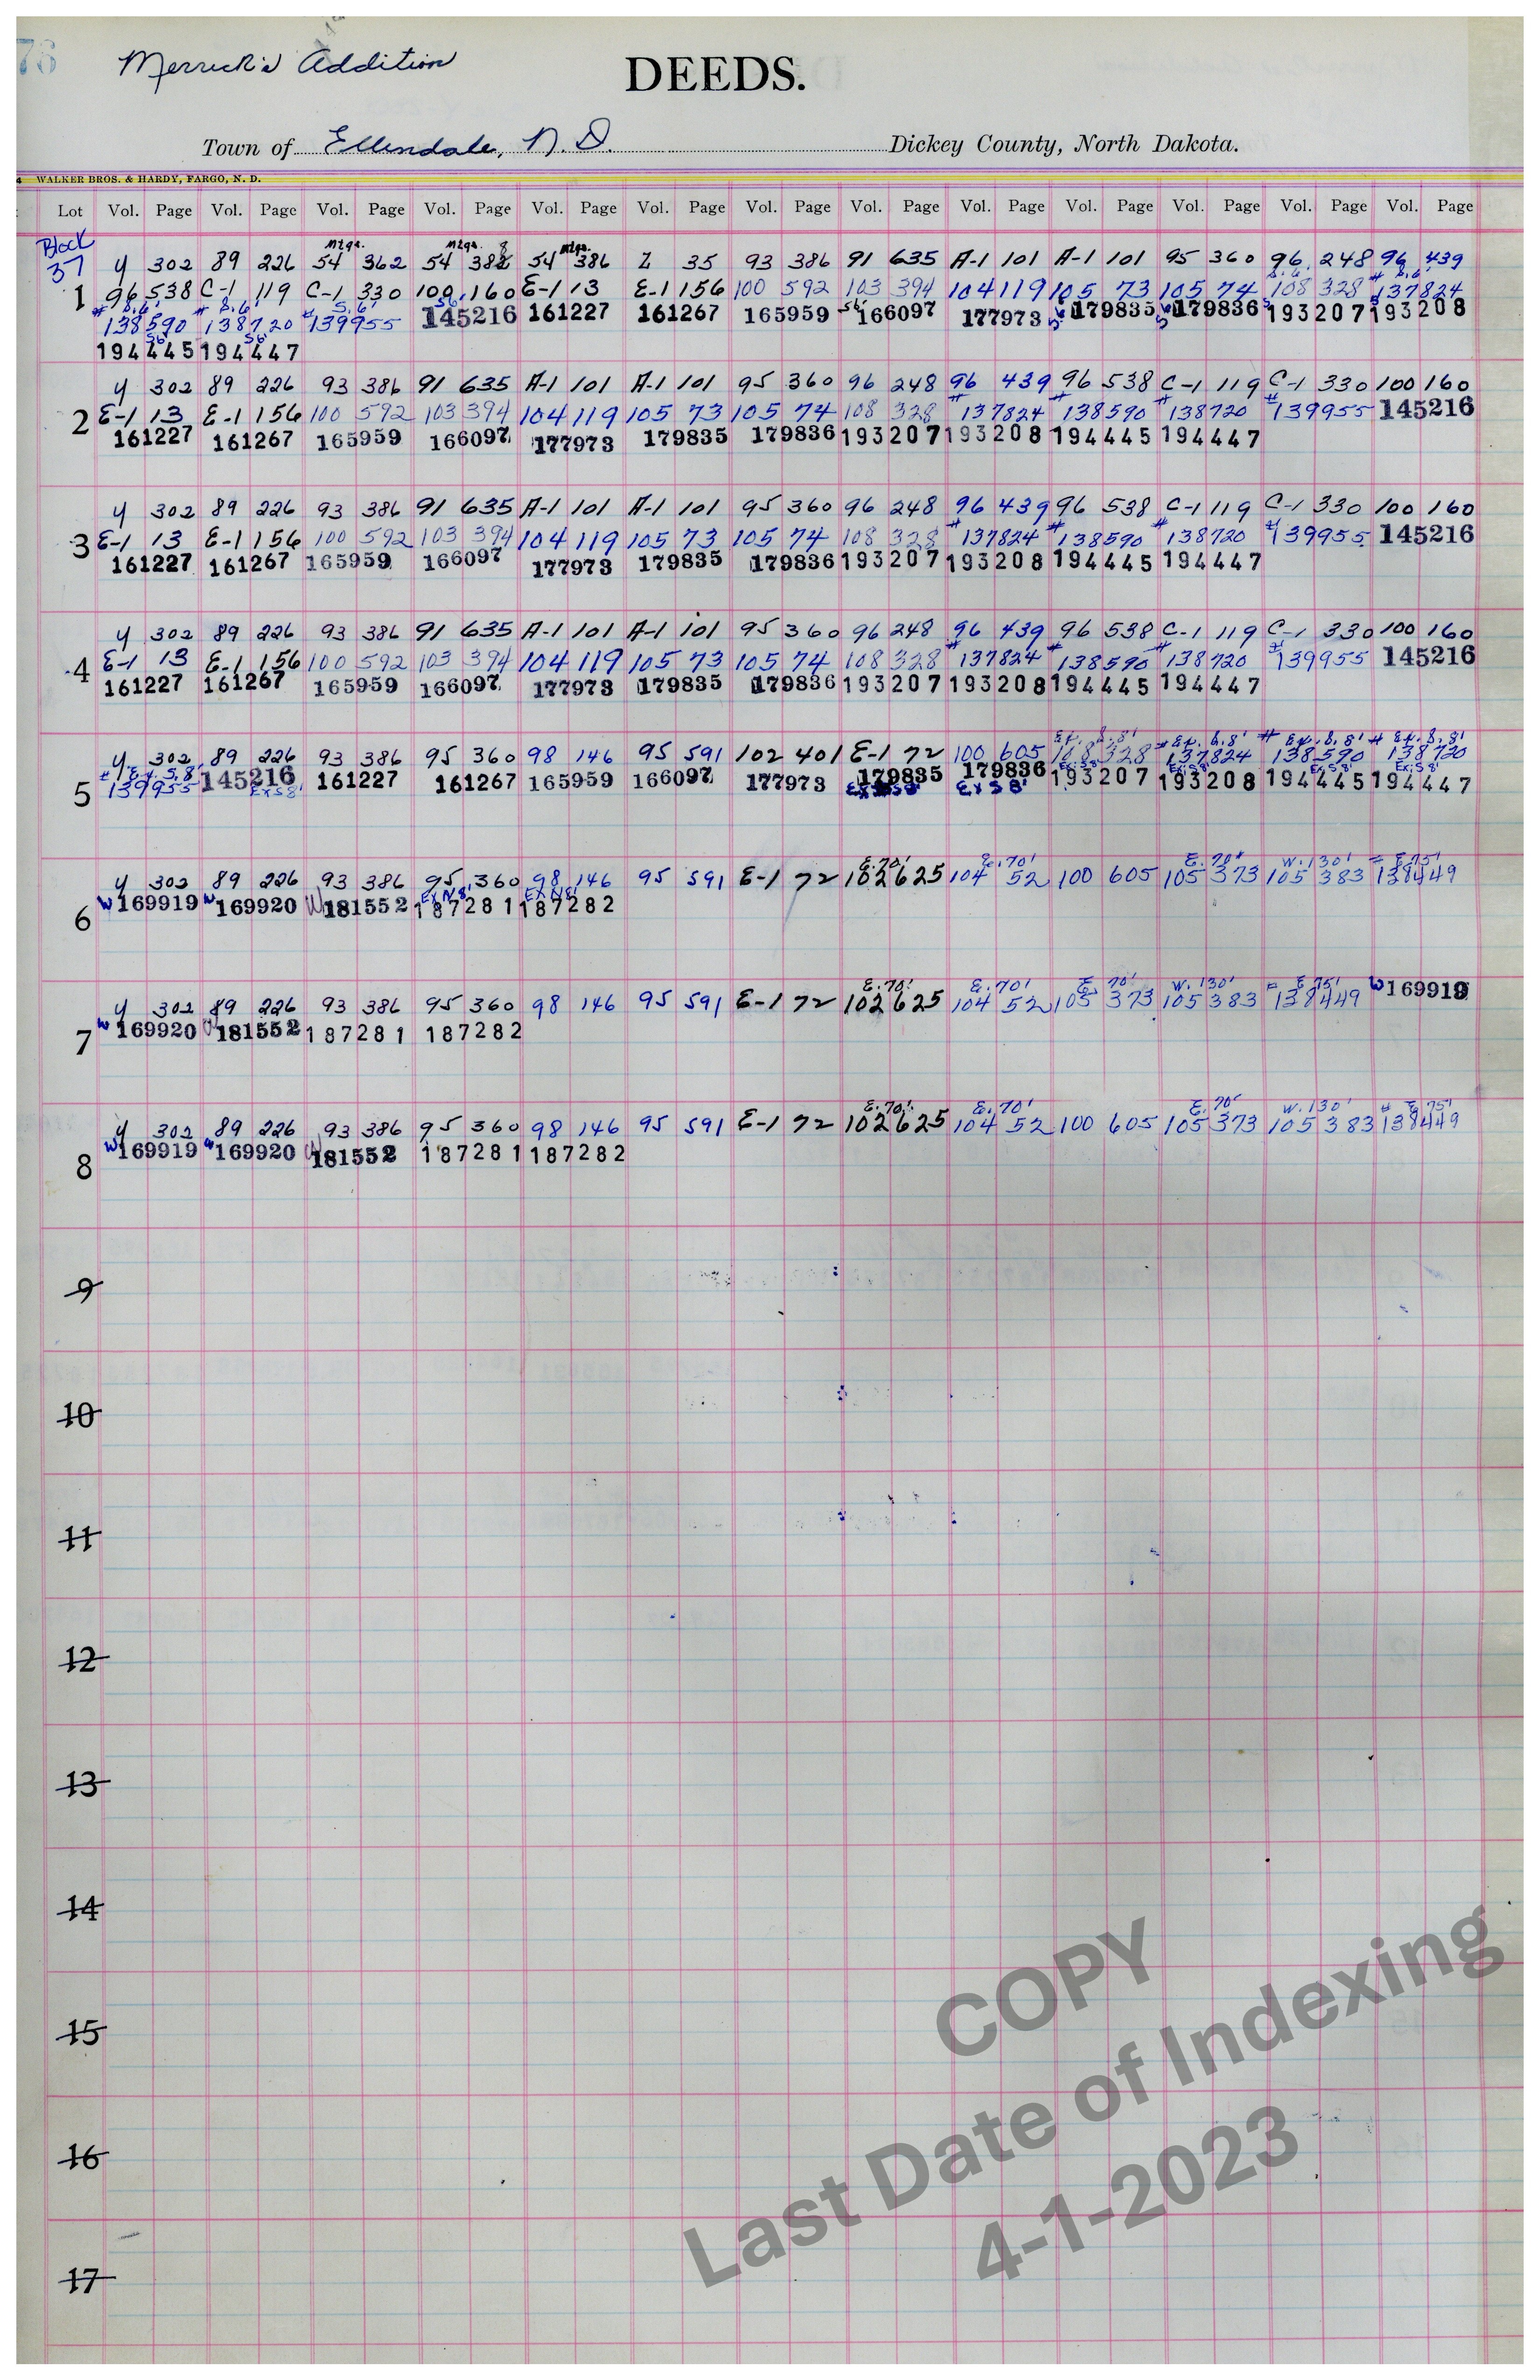 76 Merrick's Addition
DEEDS.
Town of Ellendale, N. D. Dickey County, North Dakota.
WALKER BROS. & HARDY, FARGO, N. D.
Lot Vol. Page Vol. Page Vol. Page Vol. Page Vol. Page Vol. Page Vol. Page Vol. Page Vol. Page Vol. Page Vol. Page Vol. Page Vol. Page
Block
37
Mtgs. Mtgs. Mtgs.
Y 302 89 226 54 362 54 388 54 386 Z 35 93 386 91 635 A-1 101 A-1 101 95 360 96 248 96 439
S.6' # S.6'
1 96 538 C-1 119 C-1 330 100 160 E-1 13 E-1 156 100 592 103 394 104 119 105 73 105 74 108 328 137824
# S.6' # S.6' # S.6' S6'
138590 138720 139955 145216 161227 161267 165959 S6' 166097 177973 179835 179836 193207 193208
S6' S6'
194445 194447
Y 302 89 226 93 386 91 635 A-1 101 A-1 101 95 360 96 248 96 439 96 538 C-1 119 C-1 330 100 160
2 E-1 13 E-1 156 100 592 103 394 104 119 105 73 105 74 108 328 #137824 #138590 #138720 #139955 145216
161227 161267 165959 166097 177973 179835 179836 193207 193208 194445 194447
Y 302 89 226 93 386 91 635 A-1 101 A-1 101 95 360 96 248 96 439 96 538 C-1 119 C-1 330 100 160
3 E-1 13 E-1 156 100 592 103 394 104 119 105 73 105 74 108 328 #137824 #138590 #138720 #139955 145216
161227 161267 165959 166097 177973 179835 179836 193207 193208 194445 194447
Y 302 89 226 93 386 91 635 A-1 101 A-1 101 95 360 96 248 96 439 96 538 C-1 119 C-1 330 100 160
4 E-1 13 E-1 156 100 592 103 394 104 119 105 73 105 74 108 328 #137824 #138590 #138720 #139955 145216
161227 161267 165959 166097 177973 179835 179836 193207 193208 194445 194447
Ex. S.8' # Ex. S.8' # Ex. S.8' # Ex. S.8'
Y 302 89 226 93 386 95 360 98 146 95 591 102 401 E-1 72 100 605 108 328 137824 138590 138720
# Ex. S.8' Ex S8' Ex S8' Ex S8'
5 139955 145216 161227 161267 165959 166097 177973 179835 179836 193207 193208 194445 194447
Ex S8' Ex S8' Ex S8'
E.70' E.70' E.70' W.130' E 75'
Y 302 89 226 93 386 95 360 98 146 95 591 E-1 72 102 625 104 52 100 605 105 373 105 383 138449
Ex N8' Ex N8'
6 W 169919 W 169920 W 181552 187281 187282
E.70' E.70' E 70' W.130' E 75'
Y 302 89 226 93 386 95 360 98 146 95 591 E-1 72 102 625 104 52 105 373 105 383 138449 W 169919
7 W 169920 W 181552 187281 187282
E.70' E.70' E.70' W.130' # E 75'
Y 302 89 226 93 386 95 360 98 146 95 591 E-1 72 102 625 104 52 100 605 105 373 105 383 138449
8 W 169919 W 169920 W 181552 187281 187282
9
10
11
12
13
14
15
16
17
COPY
Last Date of Indexing
4-1-2023